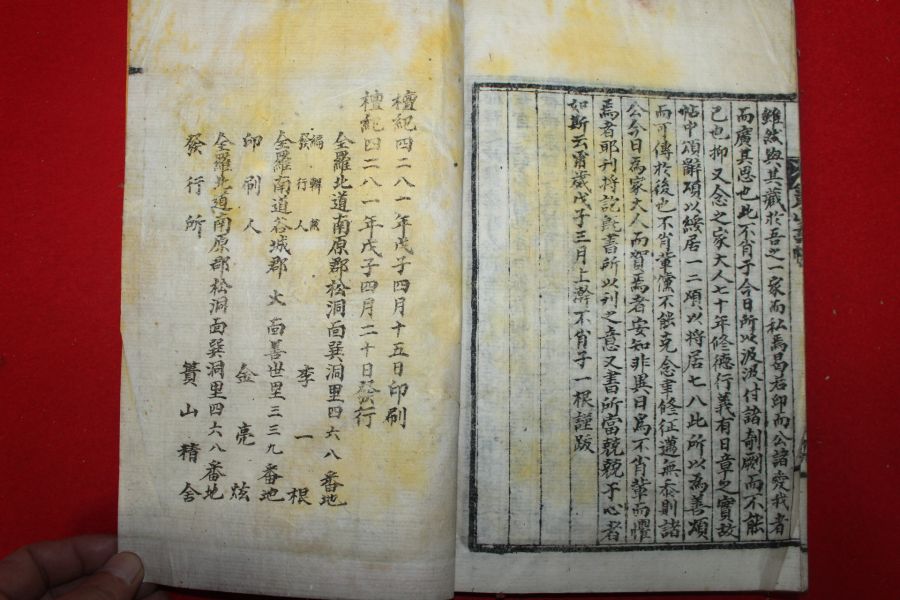 雖然與其藏於吾之一家而私焉曷若印而公諸愛我者
而廣其恩也此不肖子今日所以汲汲付諸剞劂而不能
已也抑又念之家大人七十年修德行義有日章之實故
帖中頌辭項以綏居一二頌以將居七八此所以為善頌
而可傳於後也不肖輩儻不能克念聿修征邁無忝則諸
公今日為家大人而賀焉者安知非異日為不肖輩而懼
焉者耶刊將訖旣書所以刊之意又書所當兢兢于心者
如斯云甯歲戊子三月上澣不肖子一根謹跋
檀紀四二八一年戊子四月十五日印刷
檀紀四二八一年戊子四月二十日發行
全羅北道南原郡松洞面巽洞里四六八番地
編輯兼發行人 李一根
全羅南道谷城郡 火面善世里三三九番地
印刷人 金亮炫
全羅北道南原郡松洞面巽洞里四六八番地
發行所 簣山精舍